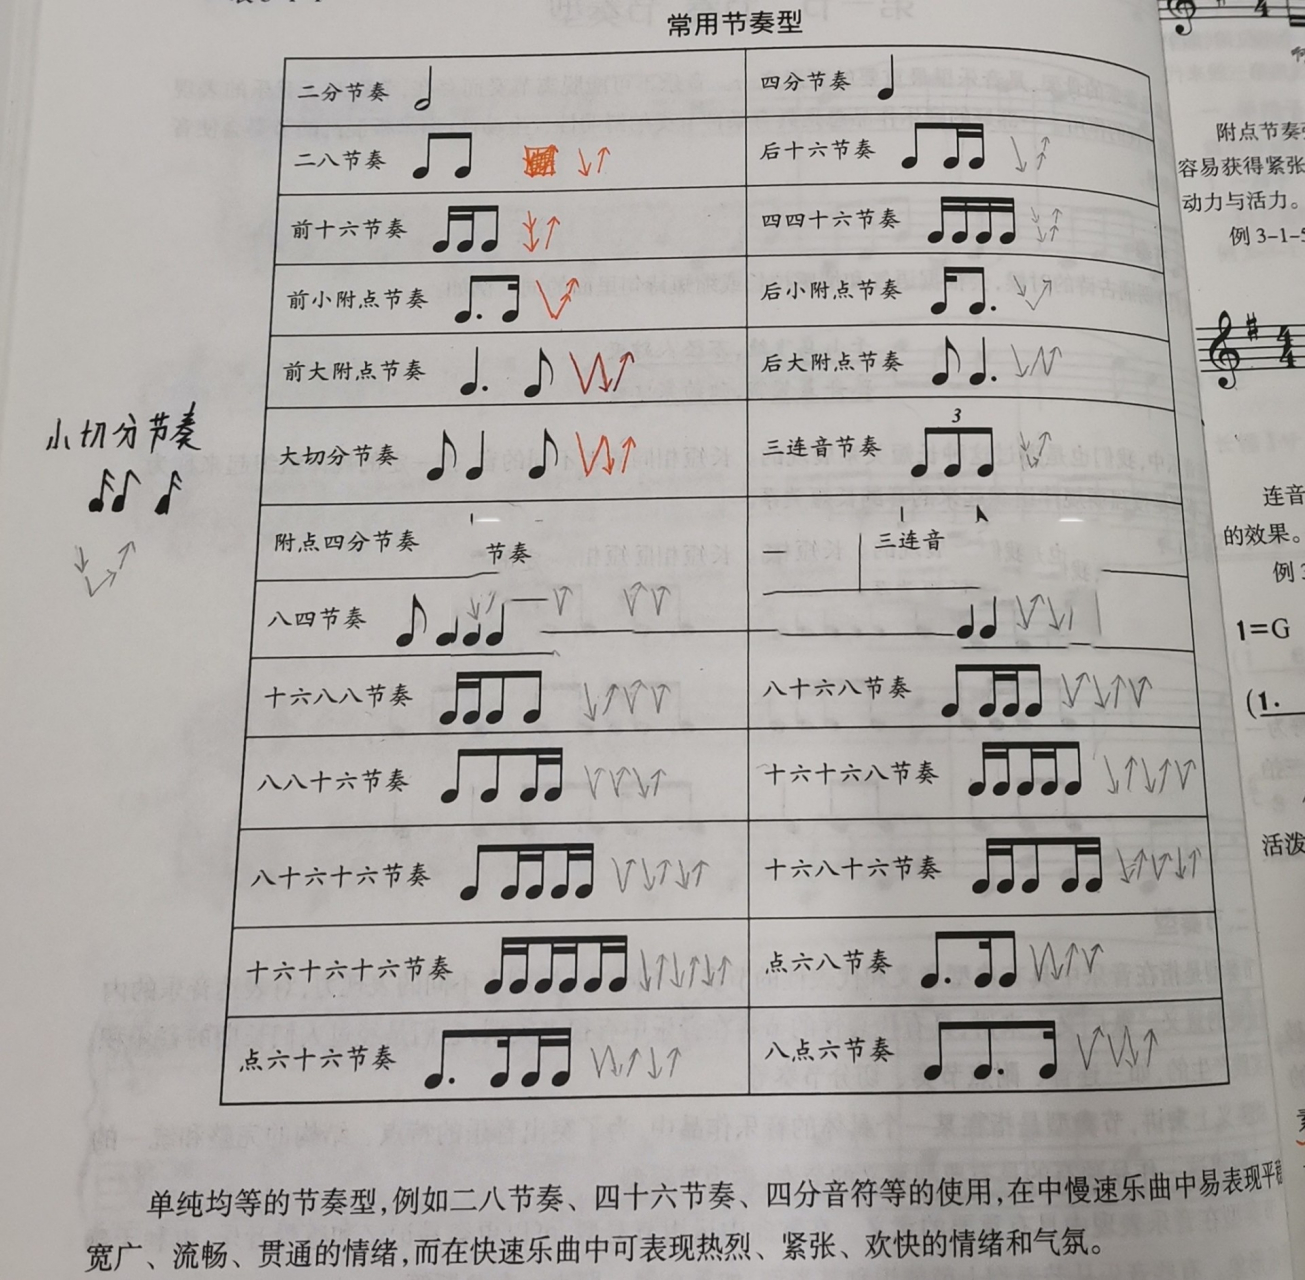 常用节奏型
二分节奏 四分节奏
二八节奏 后十六节奏
前十六节奏 四四十六节奏
前小附点节奏 后小附点节奏
前大附点节奏 后大附点节奏
小切分节奏
大切分节奏 三连音节奏
3
附点四分节奏 节奏 三连音
八四节奏
十六八八节奏 八十六八节奏
八八十六节奏 十六十六八节奏
八十六十六节奏 十六八十六节奏
十六十六十六节奏 点六八节奏
点六十六节奏 八点六节奏
单纯均等的节奏型,例如二八节奏、四十六节奏、四分音符等的使用,在中慢速乐曲中易表现平
宽广、流畅、贯通的情绪,而在快速乐曲中可表现热烈、紧张、欢快的情绪和气氛。
附点节奏
容易获得紧张
动力与活力。
例 3-1-5
4
4
连音
的效果。
例
1=G
(1.
活泼